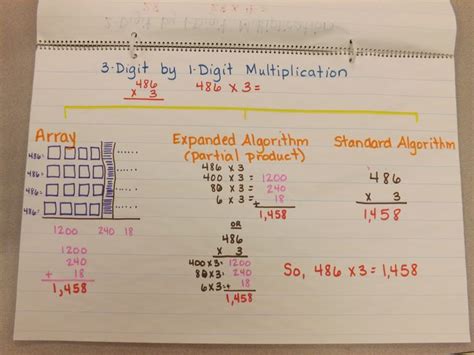 3-Digit by 1-Digit Multiplication
486
x 3
486 x 3 =
Array
486=
486=
486=
486=
1200 240 18
1200
240
+ 18
1,458
Expanded Algorithm
(partial product)
486 x 3
400 x 3 = 1200
80 x 3 = 240
6 x 3 = + 18
1,458
OR
486
x 3
400 x 3 = 1200
80 x 3 = 240
6 x 3 = + 18
1,458
Standard Algorithm
486
x 3
1,458
So, 486 x 3 = 1,458